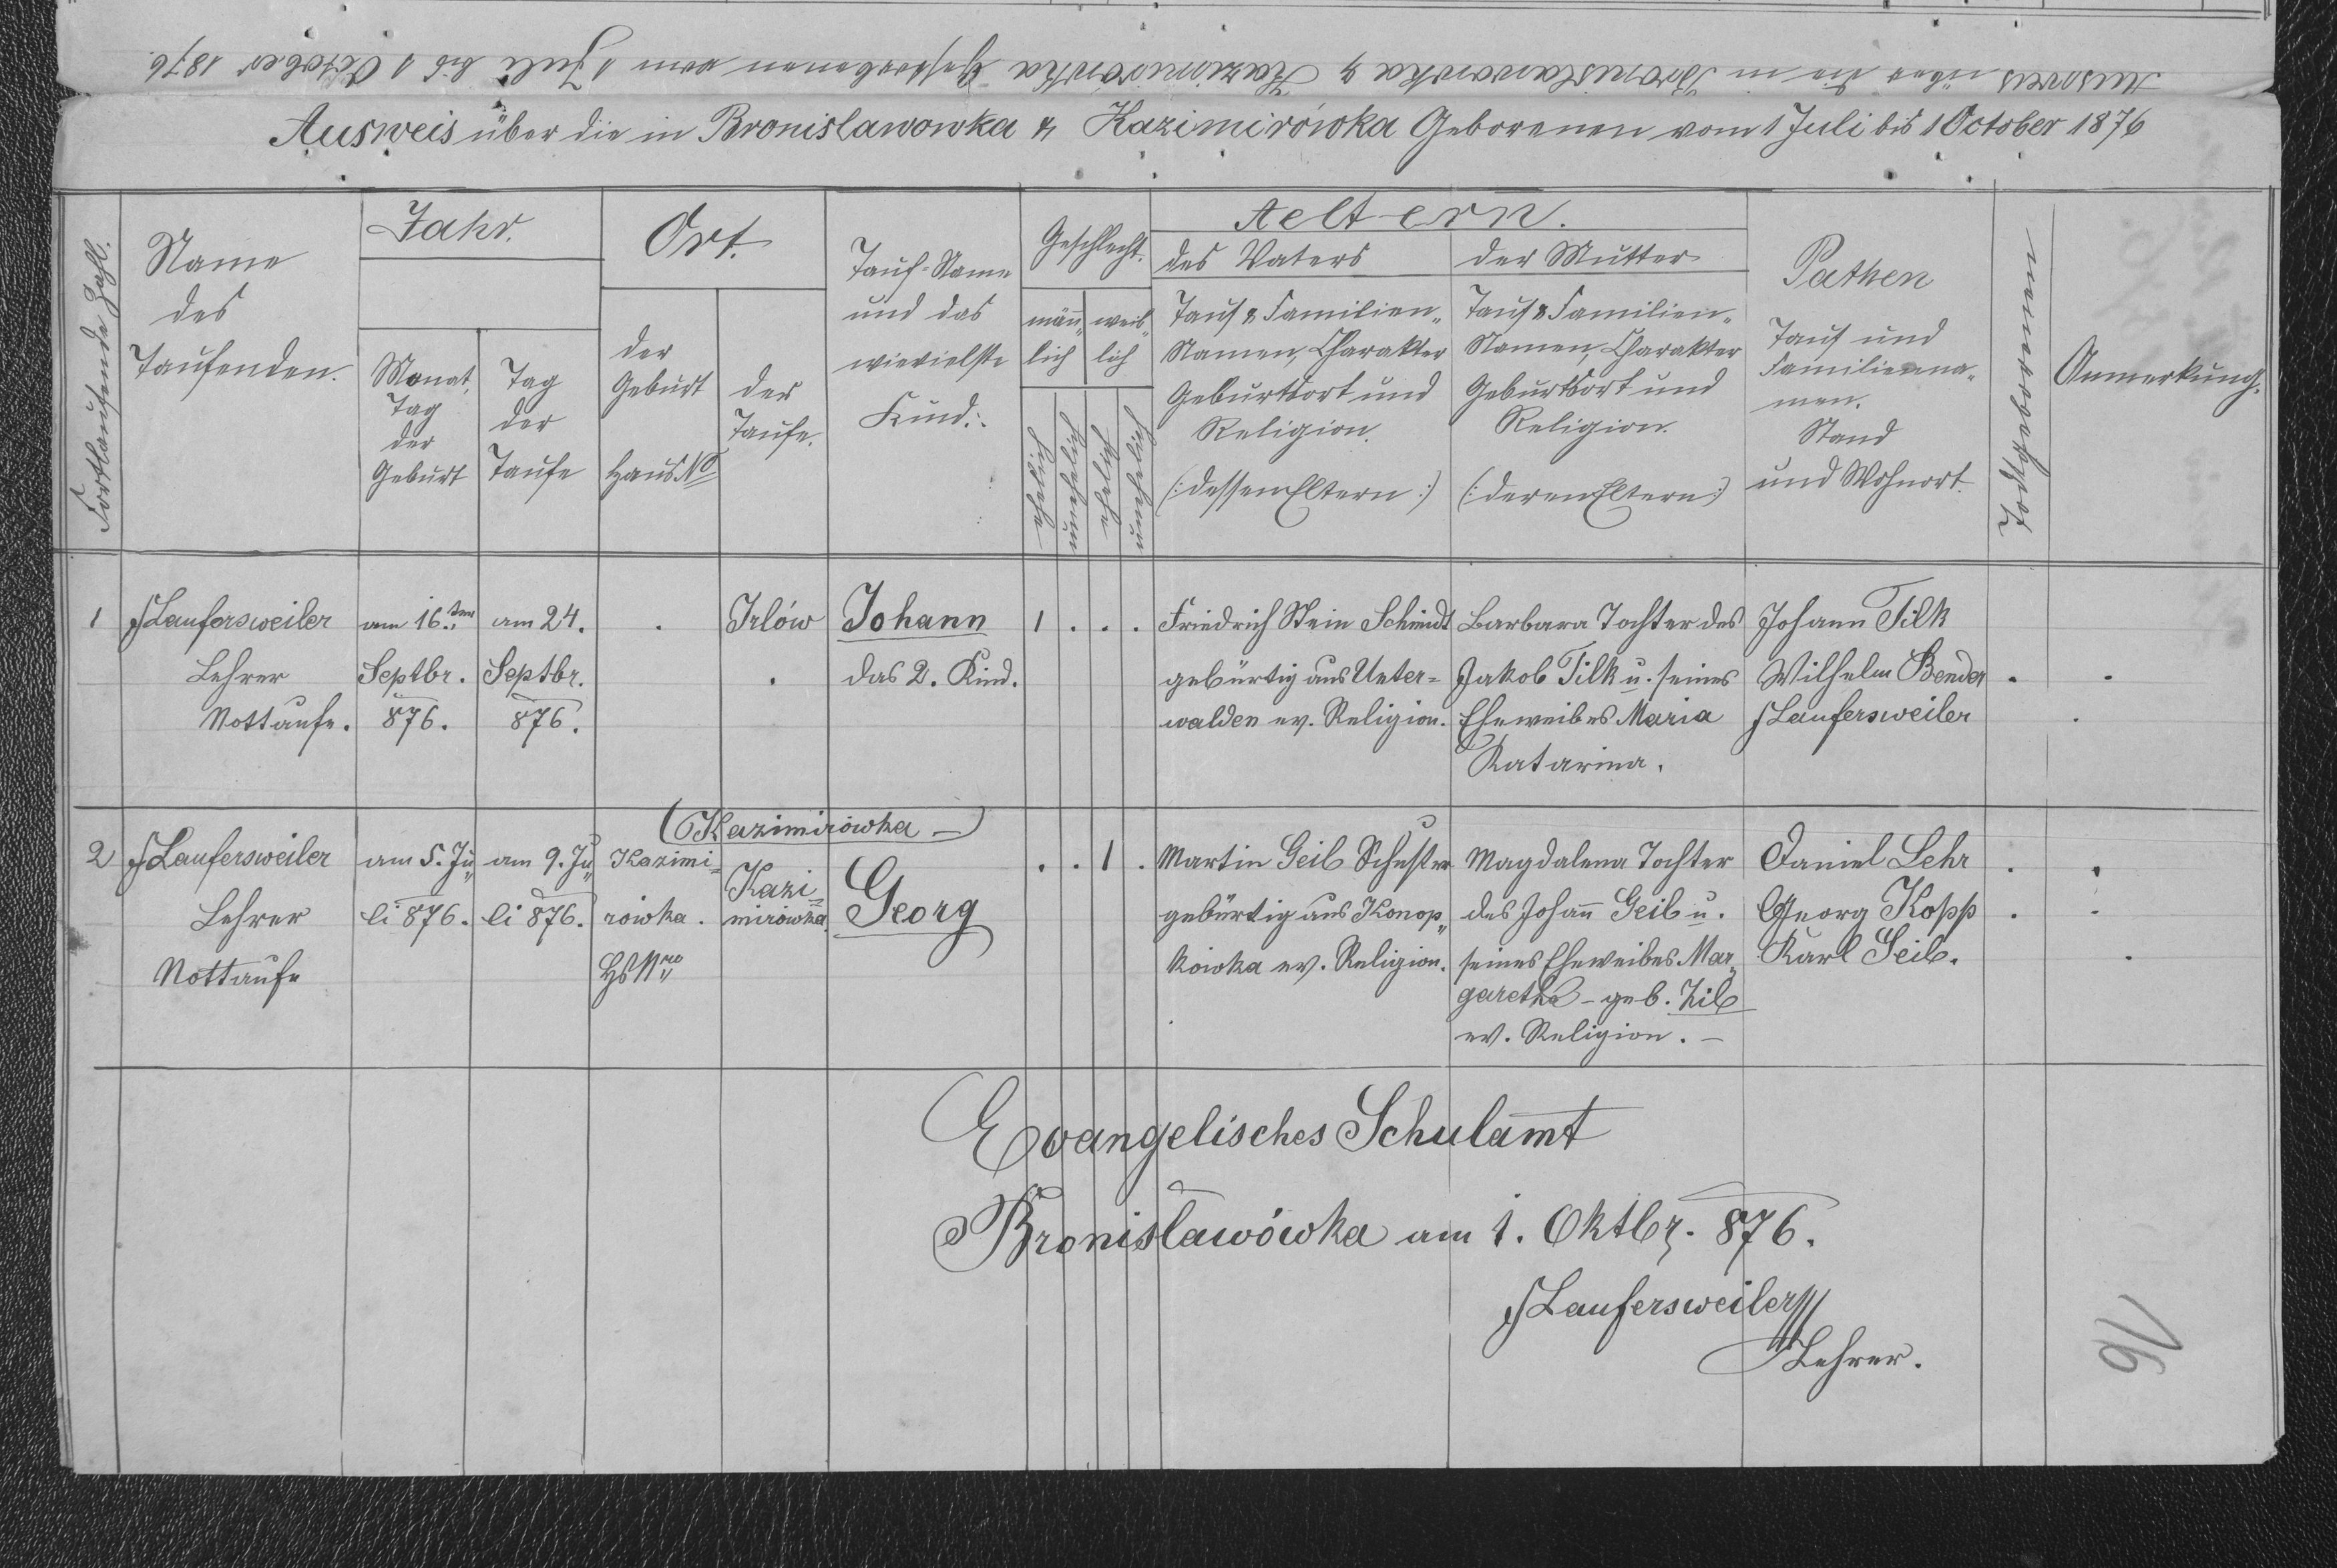 Ausweis über die in Bronislawowka & Kazimirowka Gestorbenen vom 1 Juli bis 1 October 1876.
Ausweis über die in Bronislawowka & Kazimirówka Geborenen vom 1 Juli bis 1 October 1876
Fortlaufende Zahl.
Name
des
Taufenden.
Jahr.
Monat,
Tag
der
Geburt
Tag
der
Taufe
Ort.
der
Geburt
Haus No
der
Taufe.
Tauf-Name
und das
wievielste
Kind.
Geschlecht.
männ„
lich
weib„
lich
ehelich
unehelich
ehelich
unehelich
Aeltern.
des Vaters
Tauf & Familien„
Namen, Charakter
Geburtsort und
Religion.
(: dessen Eltern :)
der Mutter
Tauf & Familien„
Namen, Charakter
Geburtsort und
Religion.
(: deren Eltern :)
Pathen
Tauf und
Familienna„
men.
Stand
und Wohnort.
Todtgeborenen
Anmerkung.
1 JLaufersweiler am 16.ten am 24. . Irlów Johann 1 . . . Friedrich Stein Schmidt Barbara Tochter des Johann Tilk
Lehrer Septbr. Septbr. . das 2. Kind. gebürtig aus Unter= Jakob Tilk u. seines Wilhelm Bender . .
Nottaufe. 876. 876. walden ev. Religion. Eheweibes Maria JLaufersweiler .
Katarina.
(Kazimirowka —)
2 JLaufersweiler am 5. Ju„ am 9. Ju„ Kazimi= Kazi= . . 1 . Martin Geib Schuster Magdalena Tochter Daniel Lehr . .
Lehrer li 876. li 876. rowka. mirowka. Georg gebürtig aus Konop„ des Johann Geib u. Georg Kopp . .
Nottaufe Hs Nro kowka ev. Religion. seines Eheweibes Mar„ Karl Geib. .
garetha – geb. Zilb
ev. Religion. –
Evangelisches Schulamt
Bronislawówka am 1. Oktbr. 876.
JLaufersweiler
Lehrer.
76